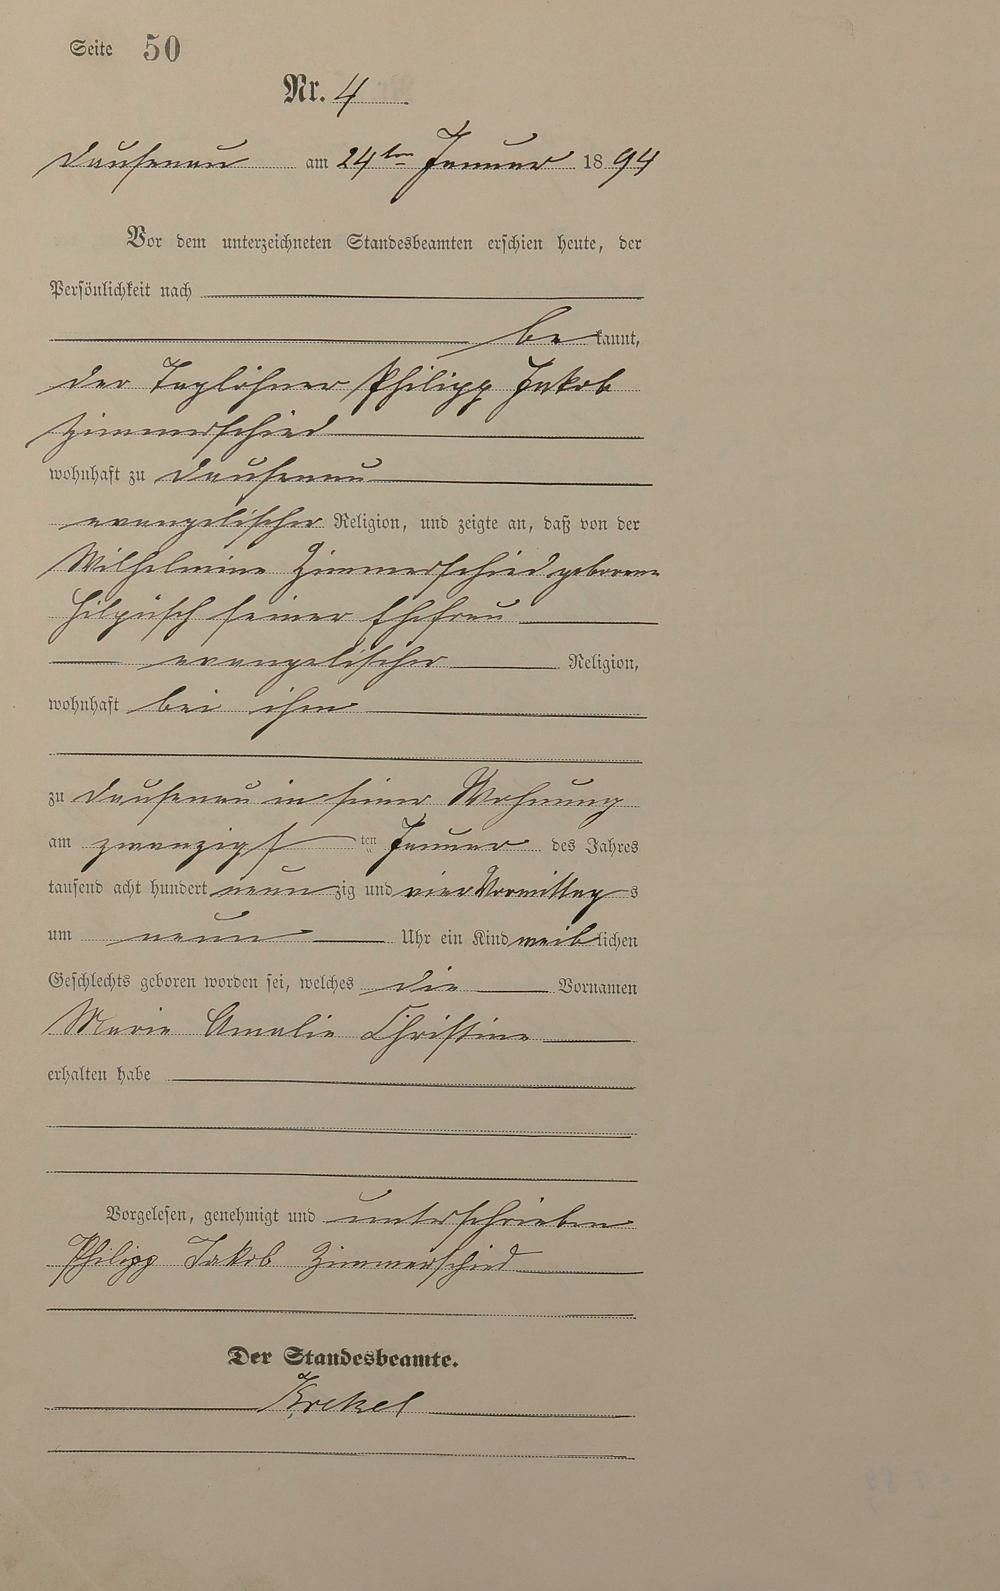 Seite 50
Nr. 4
Dausenau am 24ten Januar 1894
Vor dem unterzeichneten Standesbeamten erschien heute, der
Persönlichkeit nach
bekannt,
der Taglöhner Philipp Jakob
Zimmerschied
wohnhaft zu Dausenau
evangelischer Religion, und zeigte an, daß von der
Wilhelmine Zimmerschied geborene
Hilpüsch seiner Ehefrau
evangelischer Religion,
wohnhaft bei ihm
zu Dausenau in seiner Wohnung
am zwanzigsten Januar des Jahres
tausend acht hundert neunzig und vier Vormittags
um neun Uhr ein Kind weiblichen
Geschlechts geboren worden sei, welches die Vornamen
Marie Amalie Christine
erhalten habe
Vorgelesen, genehmigt und unterschrieben
Philipp Jakob Zimmerschied
Der Standesbeamte.
Krekel